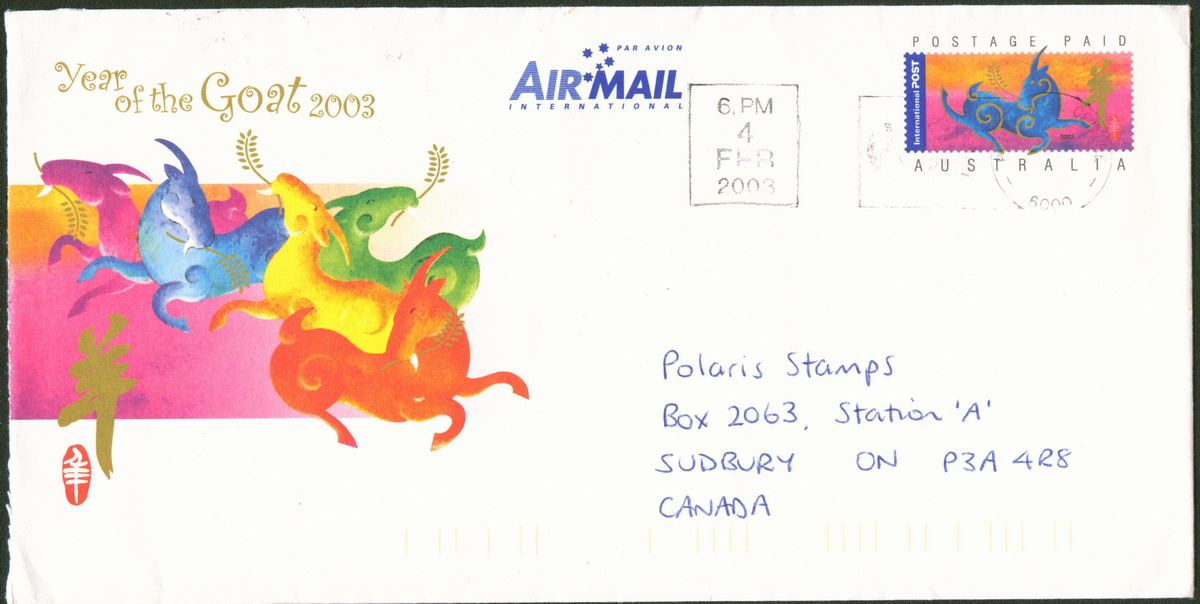 Year
of the Goat 2003
羊
PAR AVION
AIR MAIL
INTERNATIONAL
6. PM
4
FEB
2003
POSTAGE PAID
International POST
羊
2003
AUSTRALIA
6000
Polaris Stamps
Box 2063, Station 'A'
SUDBURY ON P3A 4R8
CANADA